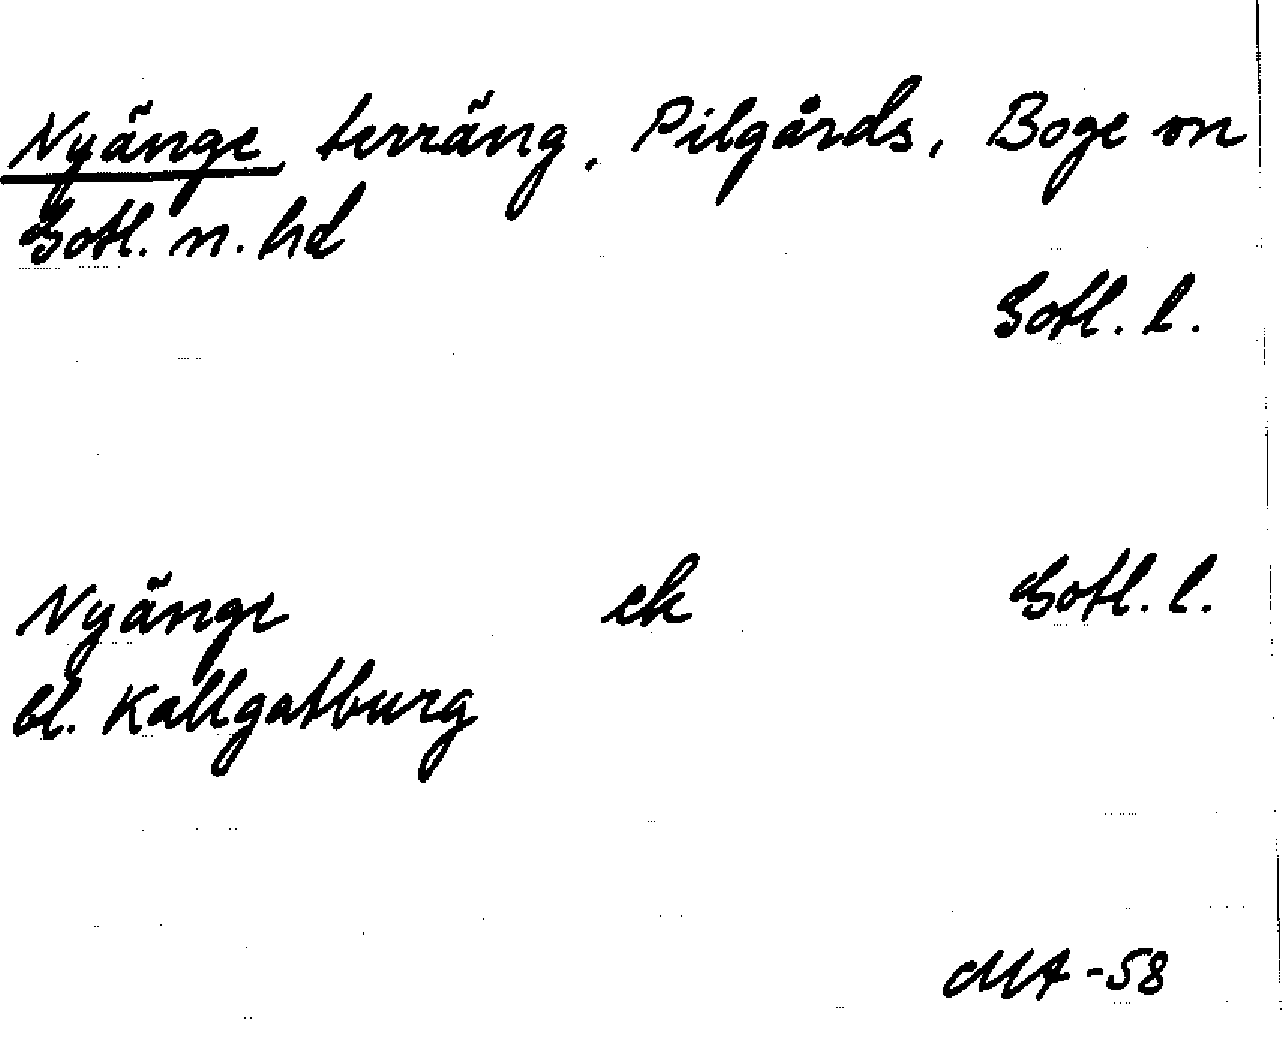 Nyänge, terräng, Pilgårds, Boge sn
Gotl. n. hd
Gotl. l.
Nyänge ek Gotl. l.
bl. Kallgatburg
MA -58